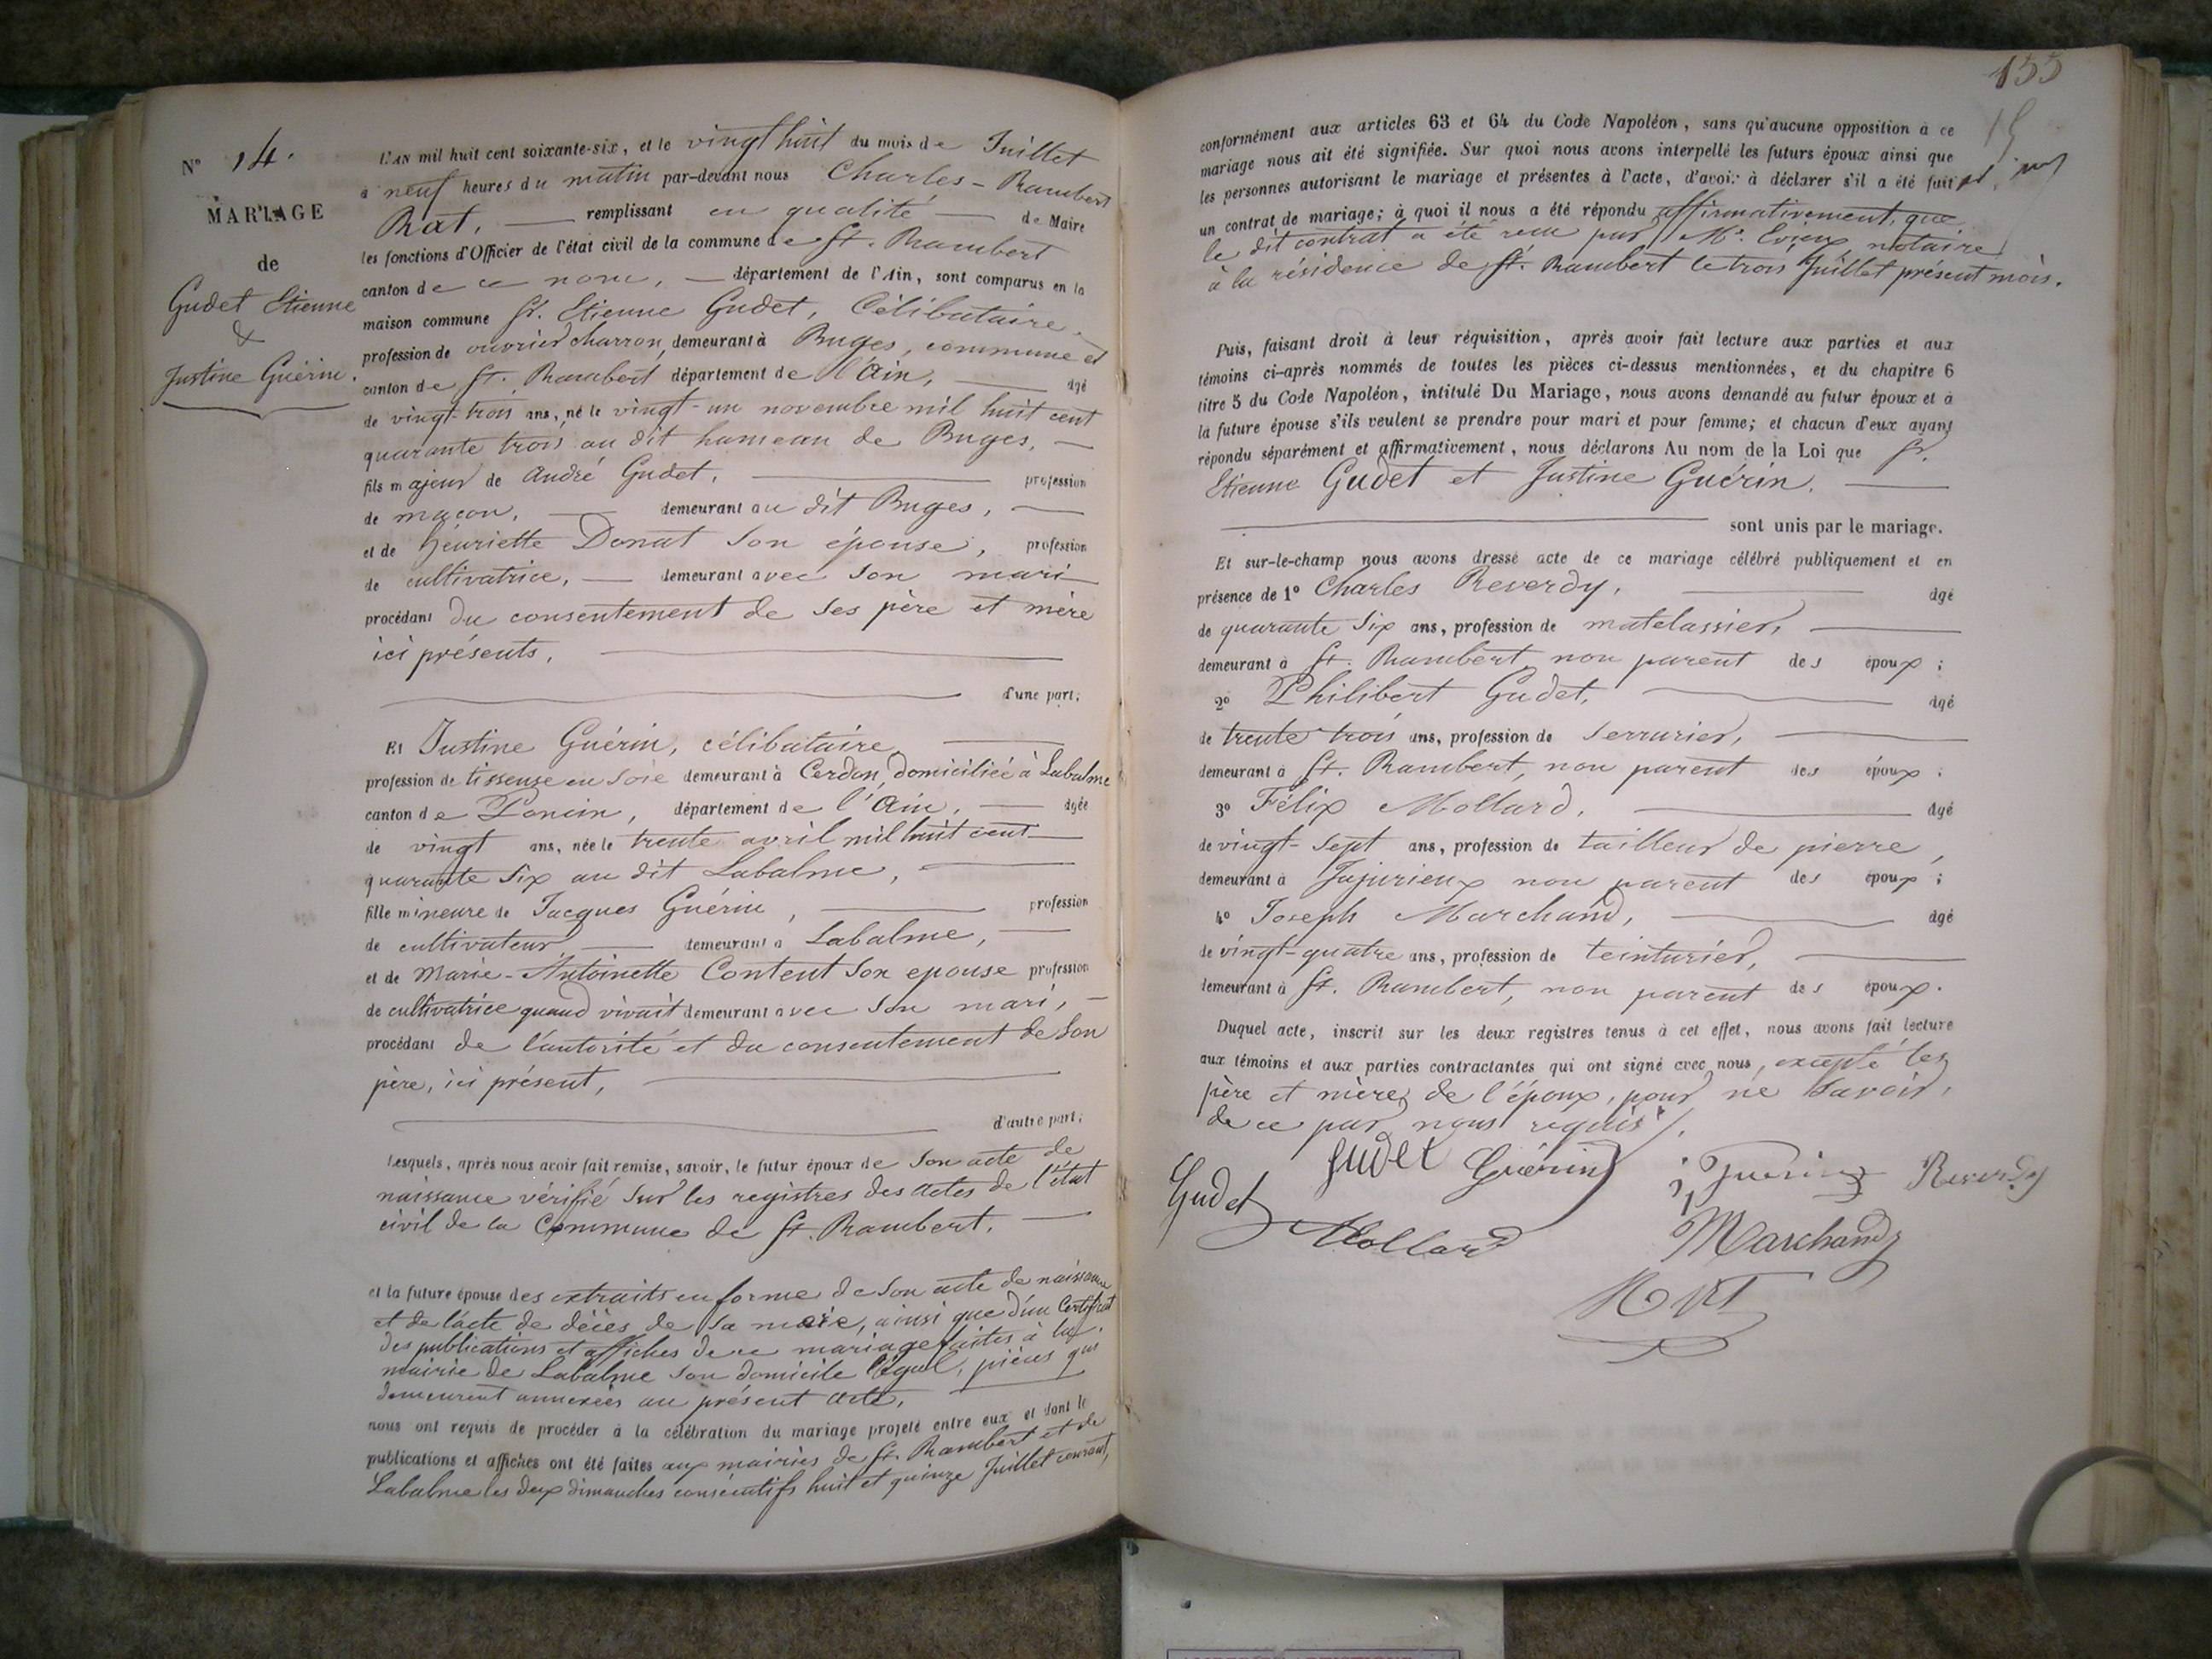 N° 14.
MARIAGE
de
Gudet Etienne
&
Justine Guérin.
L'AN mil huit cent soixante-six, et le vingt huit du mois de Juillet
à neuf heures du matin par-devant nous Charles-Rambert
Rat, remplissant en qualité de Maire
les fonctions d'Officier de l'état civil de la commune de St. Rambert
canton de ce nom, département de l'Ain, sont comparus en la
maison commune Sr. Etienne Gudet, Célibataire,
profession de ouvrier charron, demeurant à Buges, commune et
canton de St. Rambert département de l'Ain, âgé
de vingt-trois ans, né le vingt-un novembre mil huit cent
quarante trois au dit hameau de Buges,
fils majeur de André Gudet, profession
de maçon, demeurant au dit Buges,
et de Henriette Donat son épouse, profession
de cultivatrice, demeurant avec son mari
procédant du consentement de ses père et mère
ici présents,
d'une part;
Et Justine Guérin, célibataire,
profession de tisseuse en soie demeurant à Cerdon, domiciliée à Labalme
canton de Poncin, département de l'Ain, âgée
de vingt ans, née le trente avril mil huit cent
quarante six au dit Labalme,
fille mineure de Jacques Guérin, profession
de cultivateur demeurant à Labalme,
et de Marie-Antoinette Content son epouse profession
de cultivatrice quand vivait demeurant avec son mari,
procédant de l'autorité et du consentement de son
père, ici présent,
d'autre part;
Lesquels, après nous avoir fait remise, savoir, le futur époux de son acte de
naissance vérifié sur les registres des actes de l'état
civil de la Commune de St. Rambert.
et la future épouse des extraits en forme de son acte de naissance
et de l'acte de décès de sa mère, ainsi que d'un Certificat
des publications et affiches de ce mariage faites à la
mairie de Labalme son domicile légal, pièces qui
demeurent annexées au présent acte,
nous ont requis de procéder à la célébration du mariage projeté entre eux et dont le
publications et affiches ont été faites aux mairies de St. Rambert et de
Labalme les deux dimanches consécutifs huit et quinze Juillet courant,
155
conformément aux articles 63 et 64 du Code Napoléon, sans qu'aucune opposition à ce
mariage nous ait été signifiée. Sur quoi nous avons interpellé les futurs époux ainsi que
les personnes autorisant le mariage et présentes à l'acte, d'avoir à déclarer s'il a été fait
un contrat de mariage; à quoi il nous a été répondu affirmativement, que
le dit contrat a été reçu par Me. notaire
à la résidence de St. Rambert le trois Juillet présent mois.
Puis, faisant droit à leur réquisition, après avoir fait lecture aux parties et aux
témoins ci-après nommés de toutes les pièces ci-dessus mentionnées, et du chapitre 6
titre 5 du Code Napoléon, intitulé Du Mariage, nous avons demandé au futur époux et à
la future épouse s'ils veulent se prendre pour mari et pour femme; et chacun d'eux ayant
répondu séparément et affirmativement, nous déclarons Au nom de la Loi que Sr.
Etienne Gudet et Justine Guérin.
sont unis par le mariage.
Et sur-le-champ nous avons dressé acte de ce mariage célébré publiquement et en
présence de 1° Charles Reverdy, âgé
de quarante six ans, profession de matelassier,
demeurant à St. Rambert, non parent des époux;
2° Philibert Gudet, âgé
de trente trois ans, profession de serrurier,
demeurant à St. Rambert, non parent des époux;
3° Félix Mollard, âgé
de vingt-sept ans, profession de tailleur de pierre,
demeurant à Jujurieux non parent des époux;
4° Joseph Marchand, âgé
de vingt-quatre ans, profession de teinturier,
demeurant à St. Rambert, non parent des époux.
Duquel acte, inscrit sur les deux registres tenus à cet effet, nous avons fait lecture
aux témoins et aux parties contractantes qui ont signé avec nous, excepté les
père et mère de l'époux, pour ne savoir,
de ce par nous requis.
Gudet Guérin Guerin Reverdy
Gudet Mollard Marchand
Rat